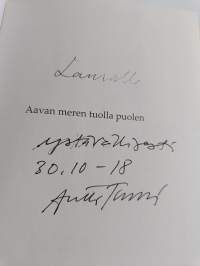 Lauralle
Aavan meren tuolla puolen
ystävällisesti
30.10-18
Antti Tuuri